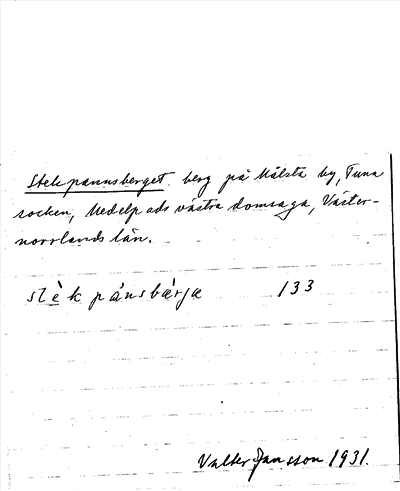 Stekpannsberget berg på Målsta by, Tuna
socken, Medelpads västra domsaga, Väster-
norrlands län.
stὲk pánsbærjæ 133
Valter Jansson 1931.